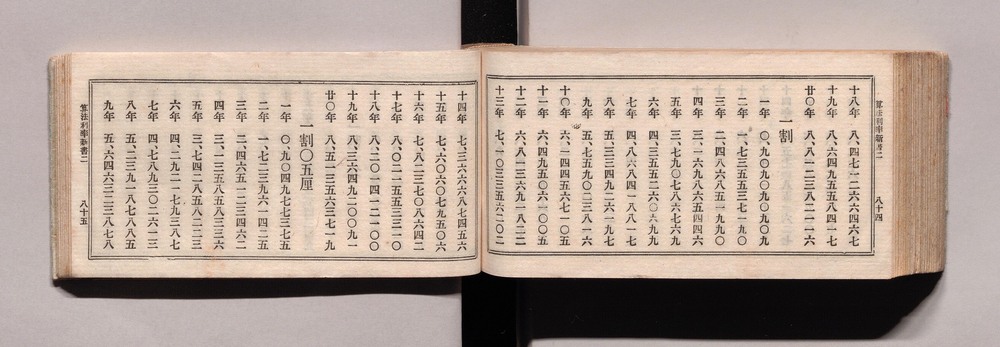 算法利率新書二 八十四
十八年 八、四七一二六六四六七
十九年 八、六四九五五八四一七
廿〇年 八、八一二三八二一一六
一割
一年 〇、九〇九〇九〇九〇九
二年 一、七三五五三七一九〇
三年 二、四八六八五一九九〇
四年 三、一六九八六五四四六
五年 三、七九〇七八六七六九
六年 四、三五五二六〇六九九
七年 四、八六八四一八八一七
八年 五、三三四九二六一九七
九年 五、七五九〇二三八一六
十〇年 六、一四四五六七一〇五
十一年 六、四九五〇六一〇〇五
十二年 六、八一三六九一八二二
十三年 七、一〇三三五六二〇二
十四年 七、三六六六八七四五六
十五年 七、六〇六〇七九五〇六
十六年 七、八二三七〇八六四二
十七年 八、〇二一五五三三一〇
十八年 八、二〇一四一二一〇〇
十九年 八、三六四九二〇〇九一
廿〇年 八、五一三五六三七一九
一割〇五厘
一年 〇、九〇四九七七三七五
二年 一、七二三九六一四二五
三年 二、四六五一二三四六二
四年 三、一三五八五八三三六
五年 三、七四二八五八二二三
六年 四、二九二一七九三八七
七年 四、七八九三〇二六一三
八年 五、二三九一八七八八五
九年 五、六四六三二三八七八
算法利率新書二 八十五